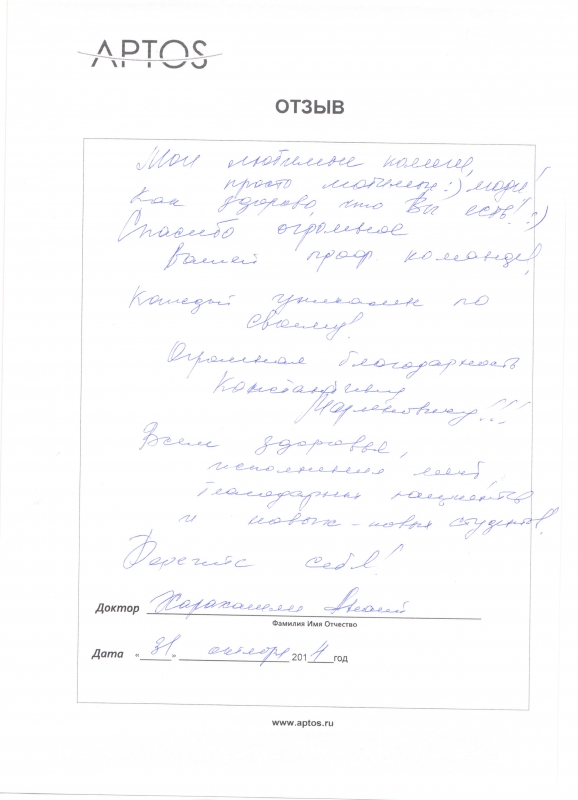 APTOS
ОТЗЫВ
Мои любимые коллеги,
просто любимые :) люди!
Как здорово, что Вы есть! :)
Спасибо огромное
Вашей проф. команде!
Каждый уникален по
своему!
Огромная благодарность
Константину
Марленовичу!!!
Всем здоровья,
исполнения
благодарных пациентов
и новых-новых студентов!
Берегите себя!
Доктор
Фамилия Имя Отчество
Дата «31» октября 2014 год
www.aptos.ru